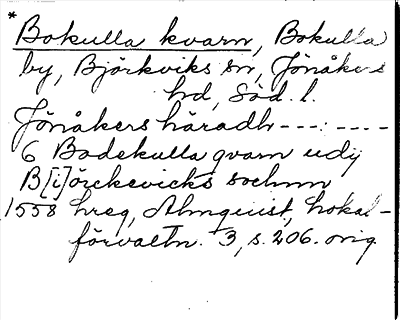 * Bokulla kvarn, Bokulla
by, Björkviks sn, Jönåkers
hd, Söd. l.
Jönåkers häradh ---:----
6 Bodekulla qvarn udij
B[i]örckevicks sochnn
1558 hreg, Almquist, Lokal-
förvaltn. 3, s. 206. orig.